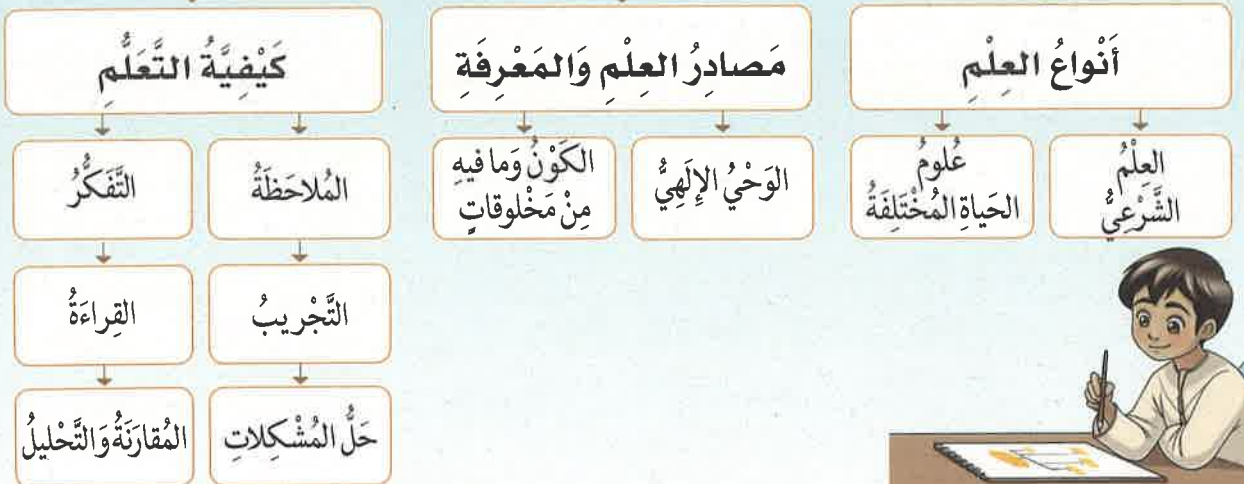 أَنْواعُ العِلْمِ
العِلْمُ
الشَّرْعِيُّ
عُلومُ
الحَياةِ المُخْتَلِفَةُ
مَصادِرُ العِلْمِ وَالمَعْرِفَةِ
الوَحْيُ الإِلَهِيُّ
الكَوْنُ وَما فيهِ
مِنْ مَخْلوقاتٍ
كَيْفِيَّةُ التَّعَلُّمِ
المُلاحَظَةُ
التَّفَكُّرُ
التَّجْريبُ
القِراءَةُ
حَلُّ المُشْكِلاتِ
المُقارَنَةُ وَالتَّحْليلُ